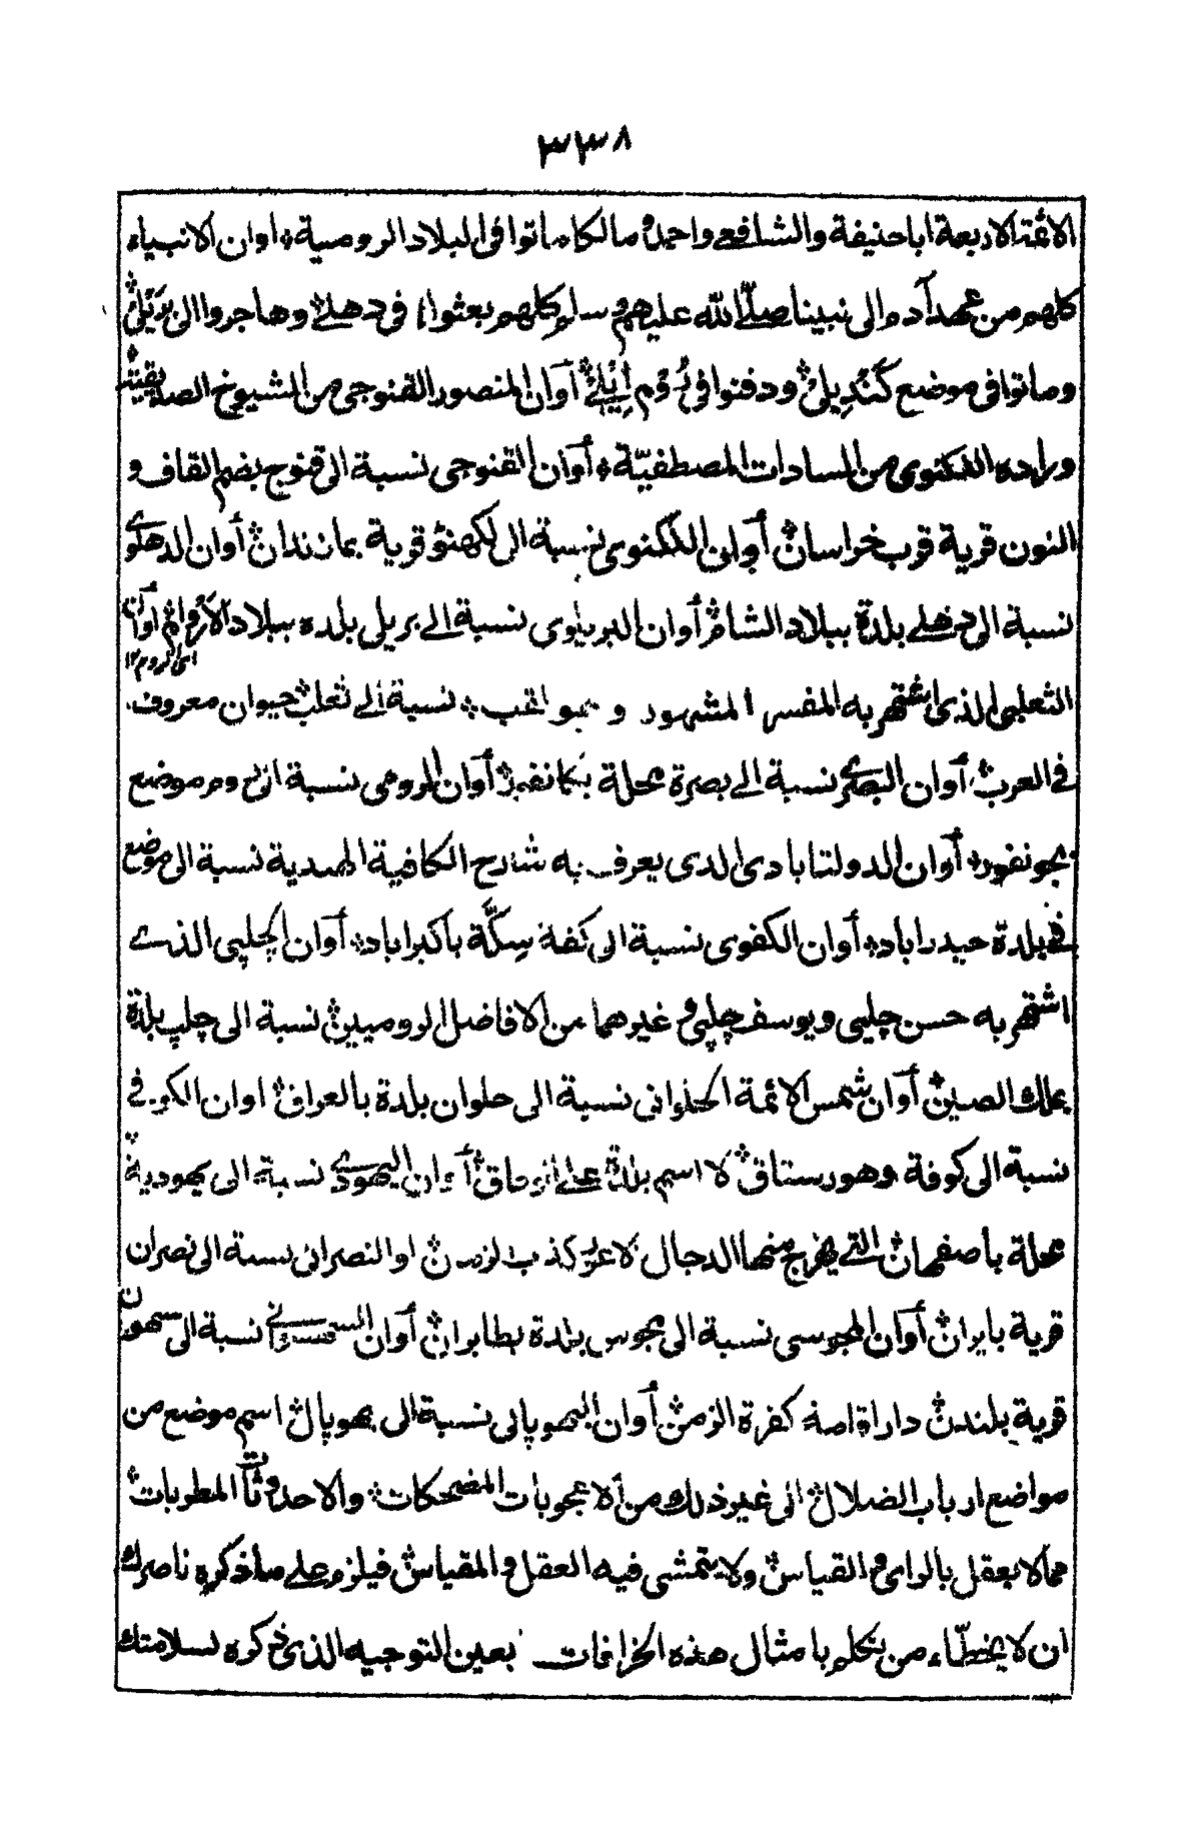 ٣٣٨
الائمة الاربعة ابا حنيفة والشافعى واحمد ومالكا ماتوا فى البلاد الرومية او ان الانبياء
كلهم من عهد آدم الى نبينا صلى الله عليهم وسلم كلهم بعثوا فى دهلى وهاجروا الى بريلى
وماتوا فى موضع كنديل ودفنوا فى أو ان المنصور القنوجى من الشيوخ الصديقية
ووالده اللكنوى من السادات المصطفية أو ان القنوجى نسبة الى قنوج بضم القاف و
النون قرية قرب خراسان أو ان اللكنوى نسبة الى لكهنؤ قرية بمازندان أو ان الدهلوى
نسبة الى دهلى بلدة ببلاد الشام أو ان البريلوى نسبة الى بريلى بلده ببلاد الاروام أو ان
اى الروم ١٢
الثعلبى الذى اشتهر به المفسر المشهور و نسبة الى ثعلب حيوان معروف
فى العرب أو ان البصرى نسبة الى بصرة محلة بكانفور أو ان الرومى نسبة الى روم موضع
بجونفور أو ان الدولتابادى الذى يعرف به شارح الكافية الهندية نسبة الى موضع
فى بلدة حيدراباد أو ان الكفوى نسبة الى كفة سكّة باكبراباد أو ان الچلپى الذى
اشتهر به حسن چلپى ويوسف چلپى وغيرهما من الافاضل الروميين نسبة الى چلپ بلدة
بملك الصين أو ان شمس الائمة الحلوانى نسبة الى حلوان بلدة بالعراق او ان الكوفى
نسبة الى كوفة وهو رستاق لا اسم بلدة على أو ان اليهودى نسبة الى يهودية
محلة باصفهان التى يخرج منها الدجال او النصرانى نسبة الى نصران
قرية بايران أو ان المجوسى نسبة الى مجوس بلدة بطابران أو ان نسبة الى
قرية بلندن دار كفرة الزمن أو ان البهوپالى نسبة الى بهوپال اسم موضع من
مواضع ارباب الضلال الى غير ذلك من الاعجوبات المضحكات والاحدوثات المطربات
مما لا يعقل بالراى والقياس ولا يتمشى فيه العقل والمقياس فيلزم على ما ذكره ناصرك
ان لا يخطّاء من يتكلم بامثال هذه الخرافات بعين التوجيه الذى ذكره لسلامتك